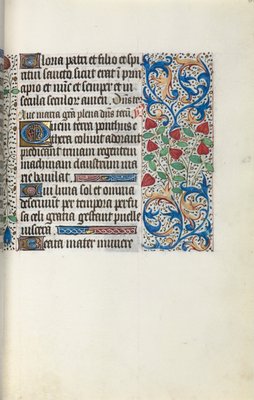 Gloria patri et filio et spi
ritui sancto sicut erat i prin
cipio et nuc et semper et in
secula seculor amen.
Aue maria gra plena dns tecu
Quem terra ponthus e
thera colunt adorant
predicant trinam regentem
machinam claustrum ma
rie baiulat
Cui luna sol et omnia
deseruiunt per tempora perfu
sa celi gratia gestant puelle
viscera
Beata mater munere